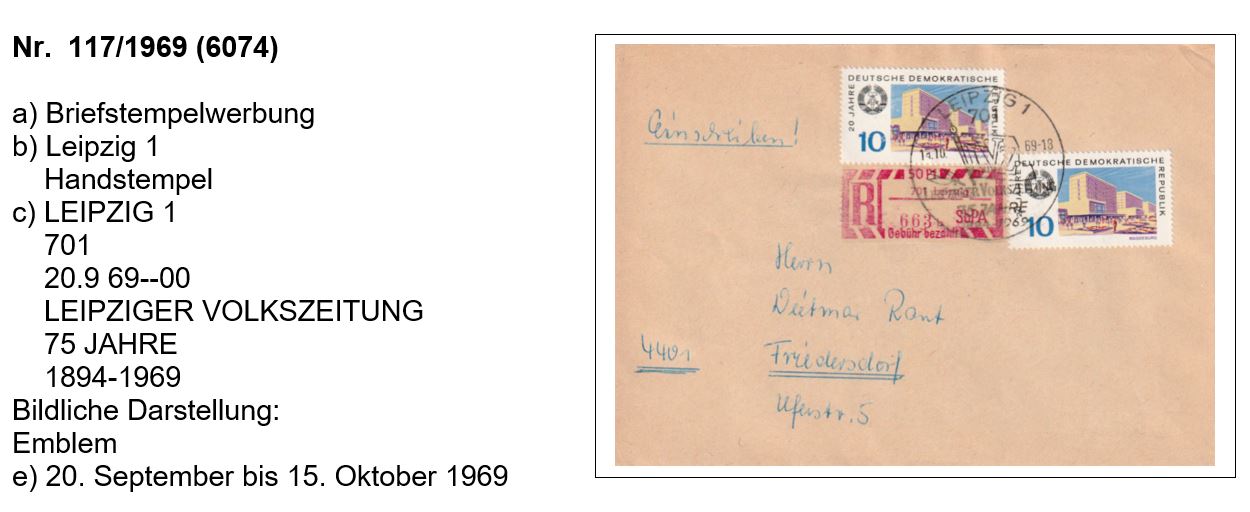 Nr. 117/1969 (6074)
a) Briefstempelwerbung
b) Leipzig 1
Handstempel
c) LEIPZIG 1
701
20.9 69--00
LEIPZIGER VOLKSZEITUNG
75 JAHRE
1894-1969
Bildliche Darstellung:
Emblem
e) 20. September bis 15. Oktober 1969
Einschreiben!
DEUTSCHE DEMOKRATISCHE
REPUBLIK
20 JAHRE
10
LEIPZIG 1
701
69-18
VOLKSZEITUNG
75 JAHRE
1969
R
50
701 Leipzig
663
SbPA
Gebühr bezahlt
DEUTSCHE DEMOKRATISCHE
REPUBLIK
10
MAGDEBURG
Herrn
Dietmar Rant
4401
Friedersdorf
Uferstr. 5